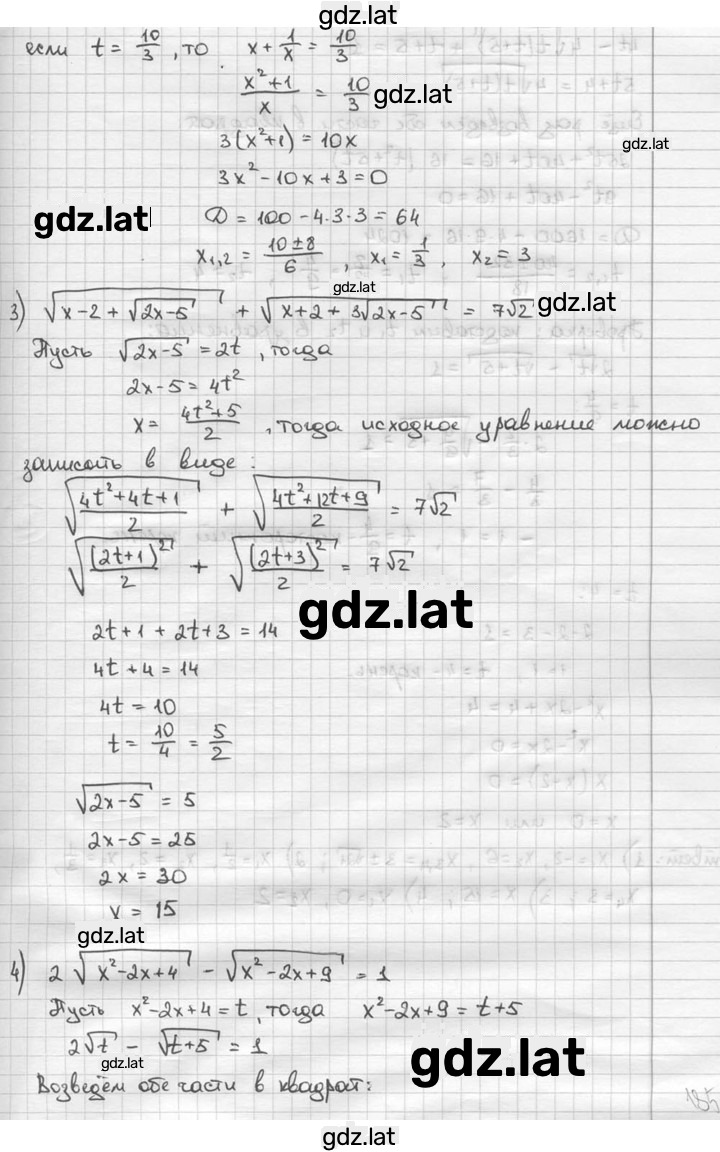 gdz.lat
если t = 10/3, то x + 1/x = 10/3
(x²+1)/x = 10/3
gdz.lat
3(x²+1) = 10x
gdz.lat
3x² - 10x + 3 = 0
gdz.lat
D = 100 - 4·3·3 = 64
x₁,₂ = (10±8)/6, x₁ = 1/3, x₂ = 3
gdz.lat
3) √(x-2+√(2x-5)) + √(x+2+3√(2x-5)) = 7√2
gdz.lat
Пусть √(2x-5) = 2t, тогда
2x-5 = 4t²
x = (4t²+5)/2, тогда исходное уравнение можно
записать в виде:
√((4t²+4t+1)/2) + √((4t²+12t+9)/2) = 7√2
√((2t+1)²/2) + √((2t+3)²/2) = 7√2
gdz.lat
2t+1 + 2t+3 = 14
4t+4 = 14
4t = 10
t = 10/4 = 5/2
√(2x-5) = 5
2x-5 = 25
2x = 30
x = 15
gdz.lat
4) 2√(x²-2x+4) - √(x²-2x+9) = 1
Пусть x²-2x+4 = t, тогда x²-2x+9 = t+5
2√t - √(t+5) = 1
gdz.lat
gdz.lat
Возведём обе части в квадрат:
gdz.lat